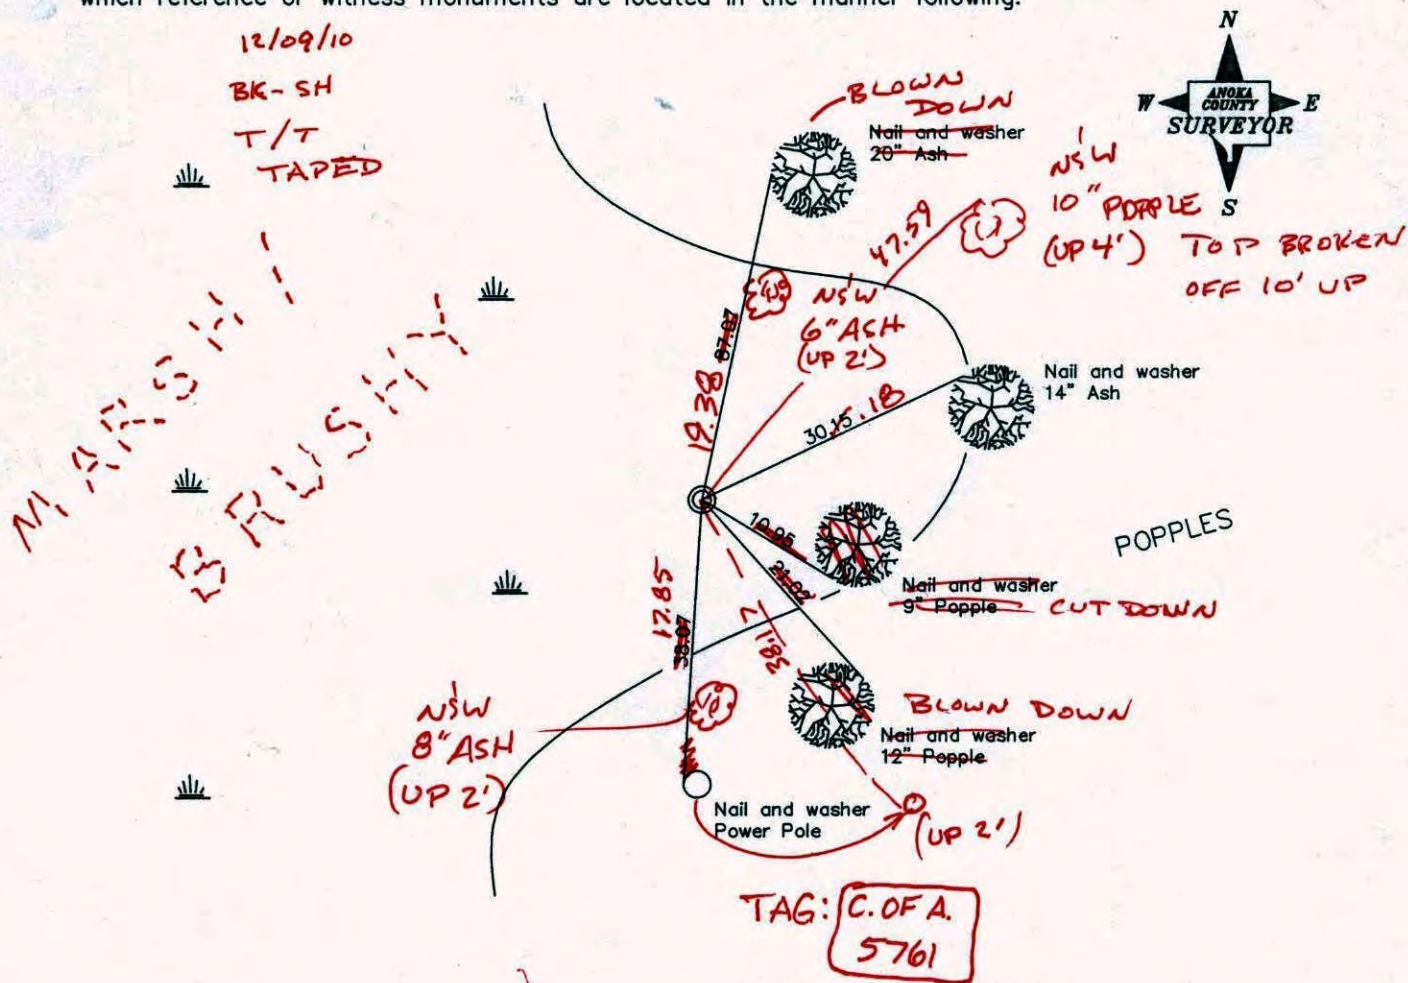 which reference or witness monuments are located in the manner following:
12/09/10
BK-SH
T/T
TAPED
N
W
ANOKA
COUNTY
E
SURVEYOR
S
BLOWN
DOWN
Nail and washer
20" Ash
N&W
10" POPPLE
(UP 4') TOP BROKEN
OFF 10' UP
47.59
MARSH!
BRUSHY
N&W
6" ASH
(UP 2')
87.07
19.38
30.15 .18
Nail and washer
14" Ash
10.95
21.02
POPPLES
Nail and washer
9" Popple CUT DOWN
17.85
38.07
38.17
N&W
8" ASH
(UP 2')
BLOWN DOWN
Nail and washer
12" Popple
Nail and washer
Power Pole
(UP 2')
TAG: C. OF A.
5761